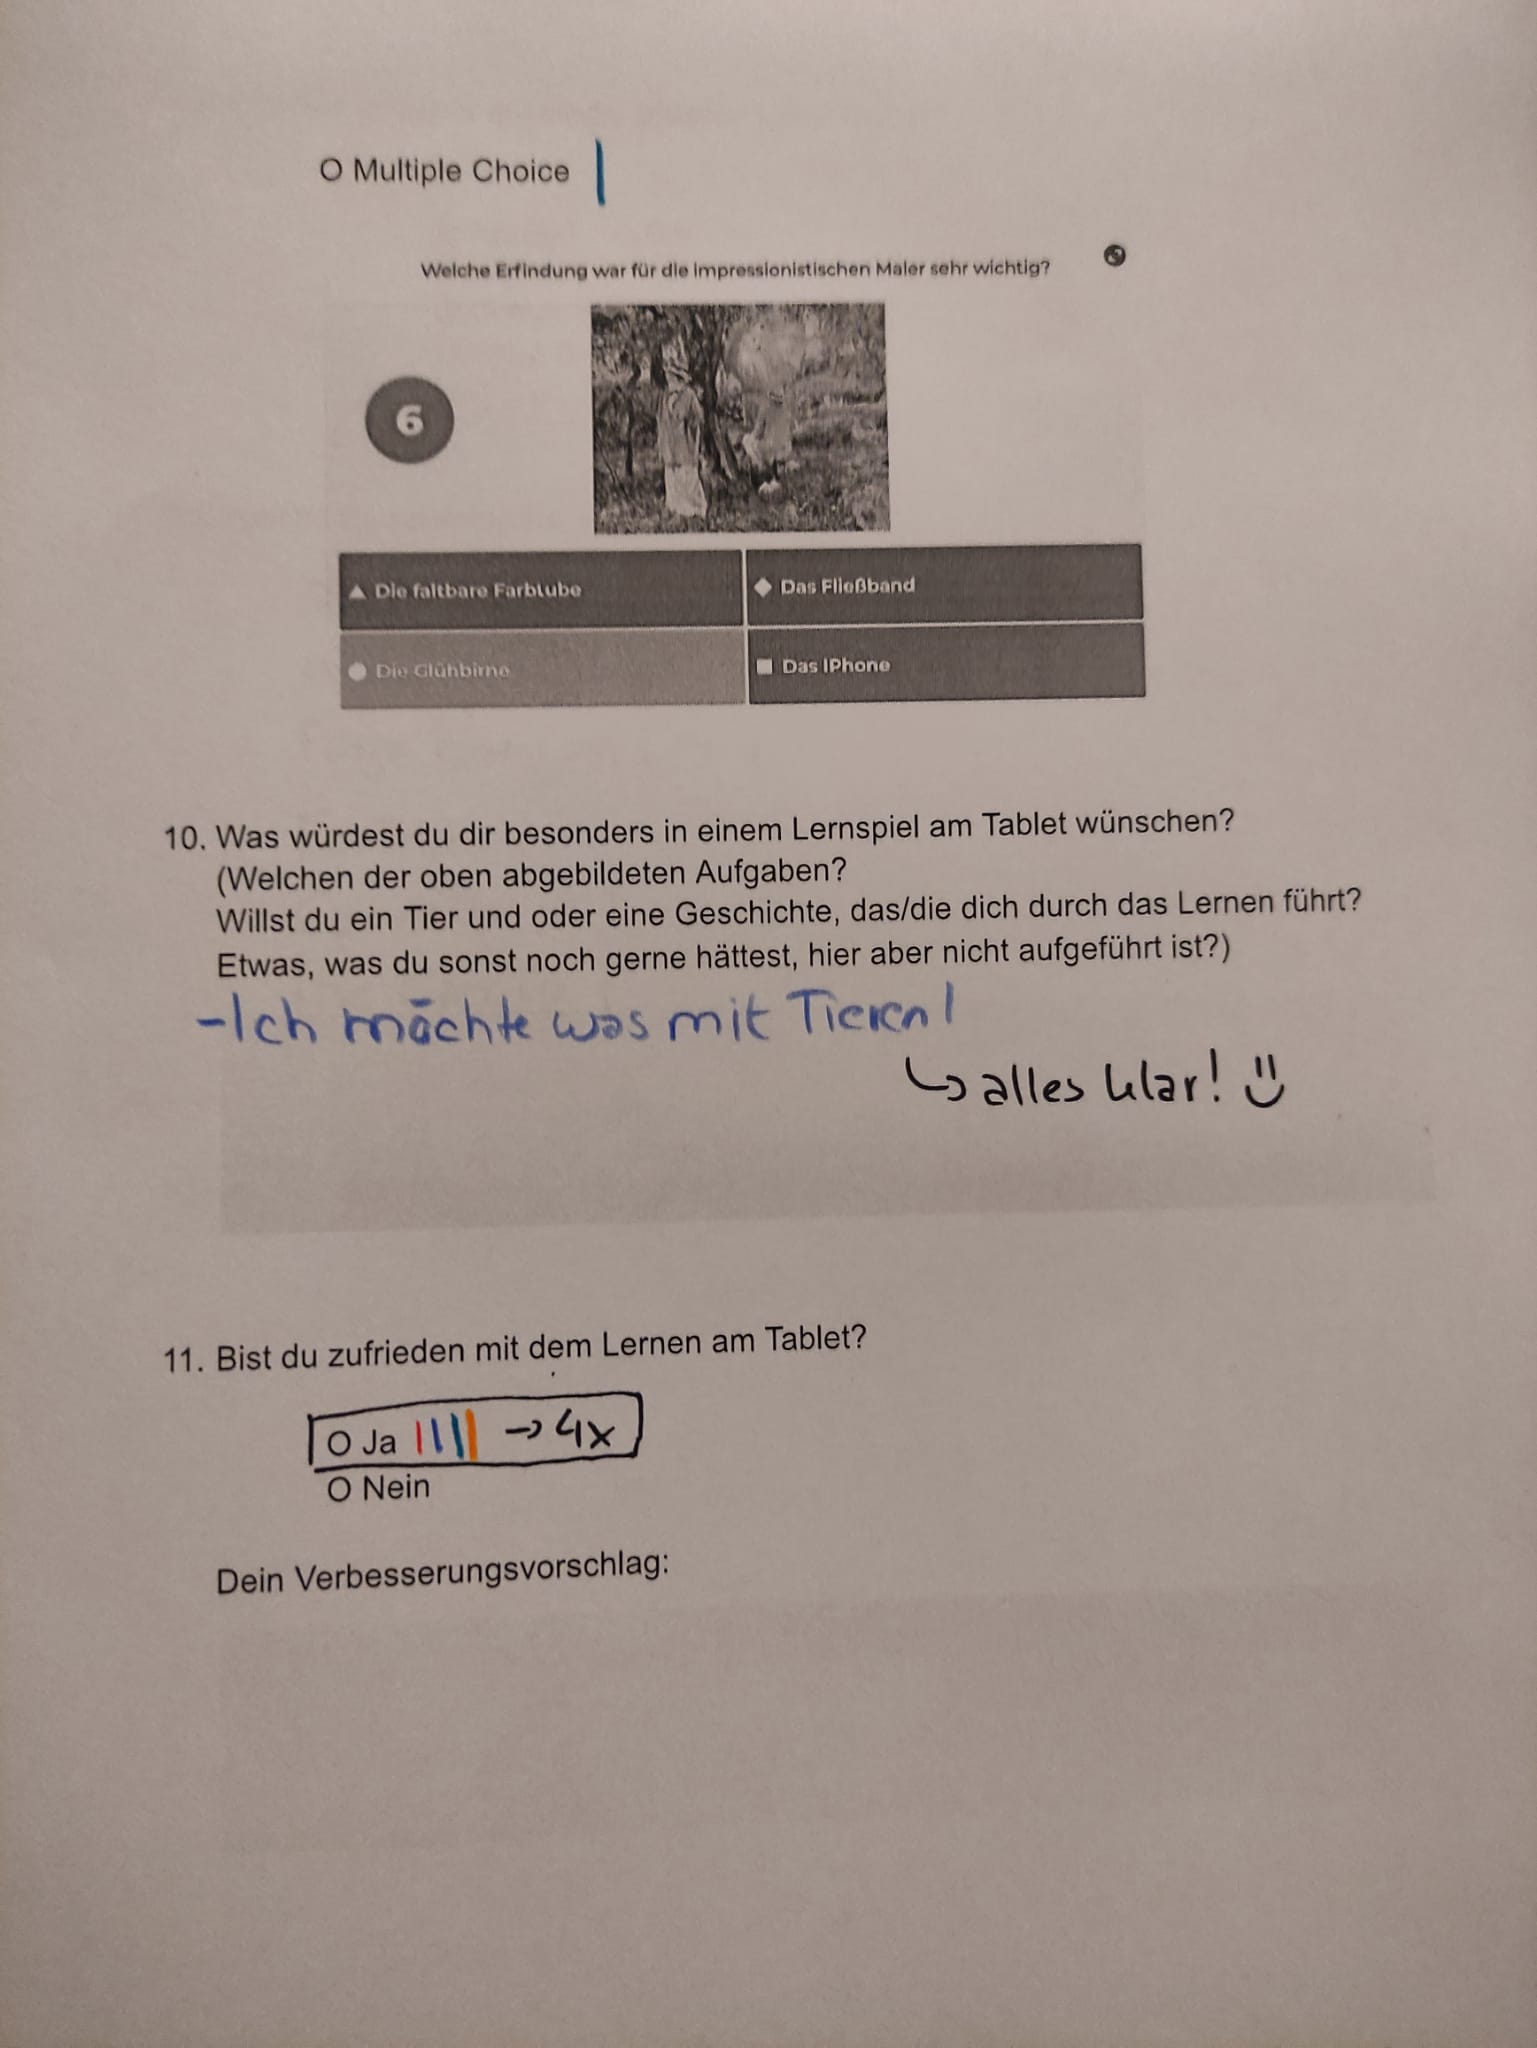 O Multiple Choice |
Welche Erfindung war für die impressionistischen Maler sehr wichtig?
6
Die faltbare Farbtube
Das Fließband
Die Glühbirne
Das iPhone
10. Was würdest du dir besonders in einem Lernspiel am Tablet wünschen?
(Welchen der oben abgebildeten Aufgaben?
Willst du ein Tier und oder eine Geschichte, das/die dich durch das Lernen führt?
Etwas, was du sonst noch gerne hättest, hier aber nicht aufgeführt ist?)
-Ich möchte was mit Tieren!
↳ alles klar! :)
11. Bist du zufrieden mit dem Lernen am Tablet?
O Ja |||| → 4x
O Nein
Dein Verbesserungsvorschlag: